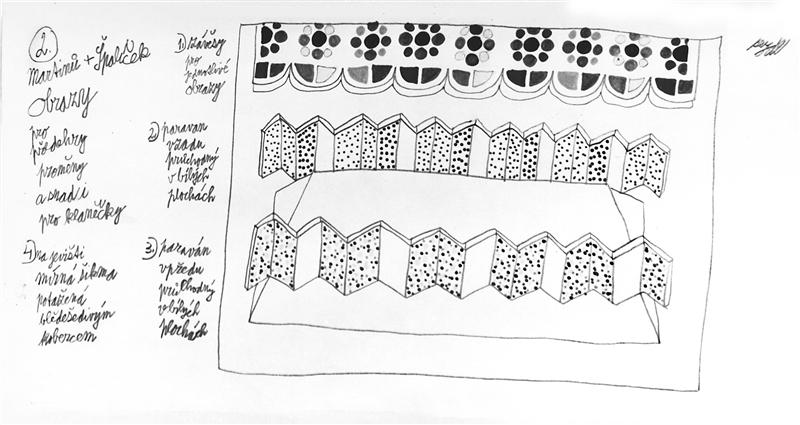 2.
Martinů + Špalíček
obrazy
pro
předehry
proměny
a snad i
pro klaněčky
1) závěsy
pro
obrazy
2) paravan
vzadu
průchodný
v bílých
plochách
3) paraván
vpředu
průchodný
v bílých
plochách
4) na jevišti
mírná šikma
potažená
bleděšedivým
kobercem